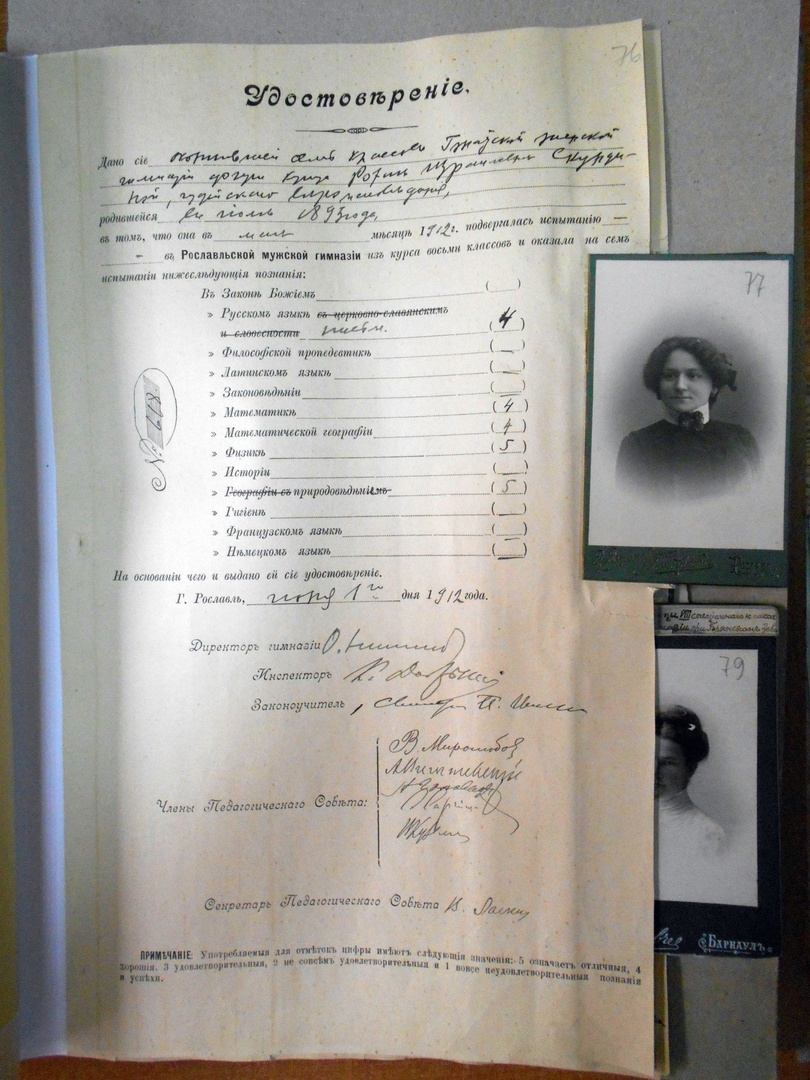 76
Удостовѣреніе.
Дано сіе окончившей семь классовъ Гжатской женской
гимназіи дочери купца
іудейскаго вѣроисповѣданія,
родившейся въ іюлѣ 1893 года,
въ томъ, что она въ маѣ мѣсяцѣ 1912 г. подвергалась испытанію —
— въ Рославльской мужской гимназіи изъ курса восьми классовъ и оказала на семъ
испытаніи нижеслѣдующія познанія:
Въ Законѣ Божіемъ (—)
» Русскомъ языкѣ съ церковно-славянскимъ
и словесности письм. (4)
» Философской пропедевтикѣ (—)
» Латинскомъ языкѣ (—)
» Законовѣдѣніи (—)
» Математикѣ (4)
» Математической географіи (4)
» Физикѣ (5)
» Исторіи (—)
» Географіи съ природовѣдѣніемъ (5)
» Гигіенѣ (—)
» Французскомъ языкѣ (—)
» Нѣмецкомъ языкѣ (—)
№ 879
На основаніи чего и выдано ей сіе удостовѣреніе.
Г. Рославль, 1го дня 1912 года.
Директоръ гимназіи
Инспекторъ
Законоучитель
Члены Педагогическаго Совѣта:
В. Миролюбов
Секретарь Педагогическаго Совѣта
ПРИМѢЧАНІЕ: Употребляемыя для отмѣтокъ цифры имѣютъ слѣдующія значенія: 5 означаетъ отличныя, 4
хорошія, 3 удовлетворительныя, 2 не совсѣмъ удовлетворительныя и 1 вовсе неудовлетворительныя познанія
и успѣхи.
77
79
Барнаулъ